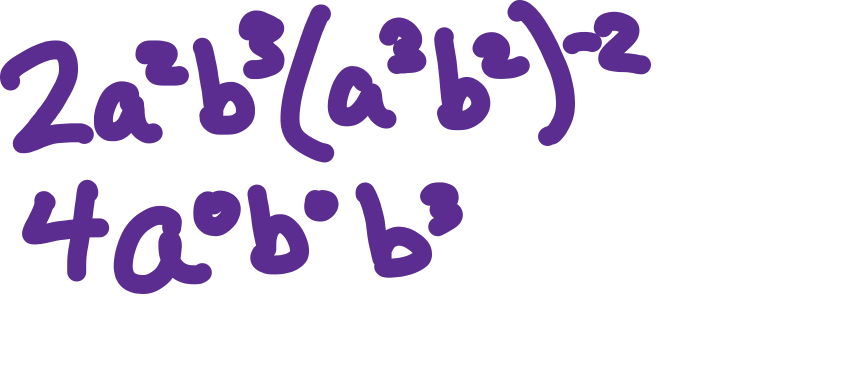 2a²b³(a³b²)⁻²
4a⁰b⁰b³